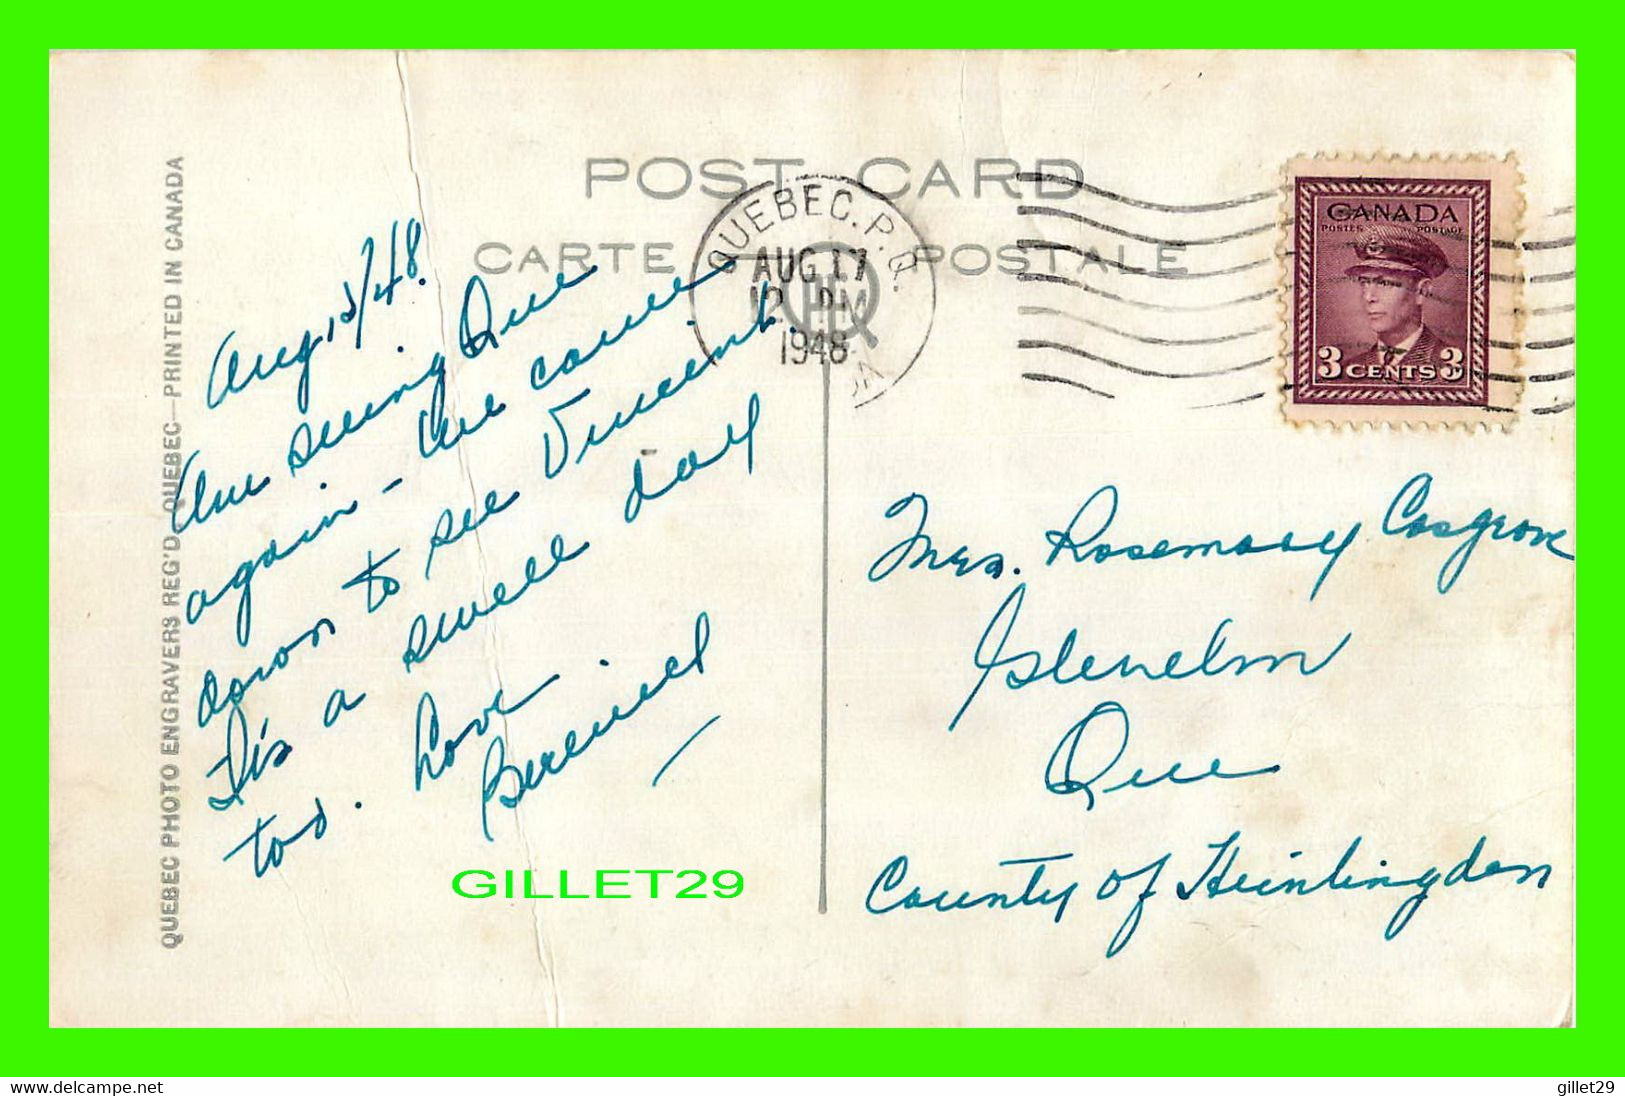 POST CARD
CARTE POSTALE
QUEBEC PHOTO ENGRAVERS REG'D QUEBEC—PRINTED IN CANADA
QUEBEC. P. Q.
AUG 17
12 PM
1948
CANADA
POSTES POSTAGE
3 CENTS 3
Aug 15/48.
Am seeing Que
again - We came
down to see Vincent.
It's a swell day
too. Love
Mrs. Rosemary Cosgrove
Islenelm
Que
County of Huntingdon
GILLET29
www.delcampe.net
gillet29